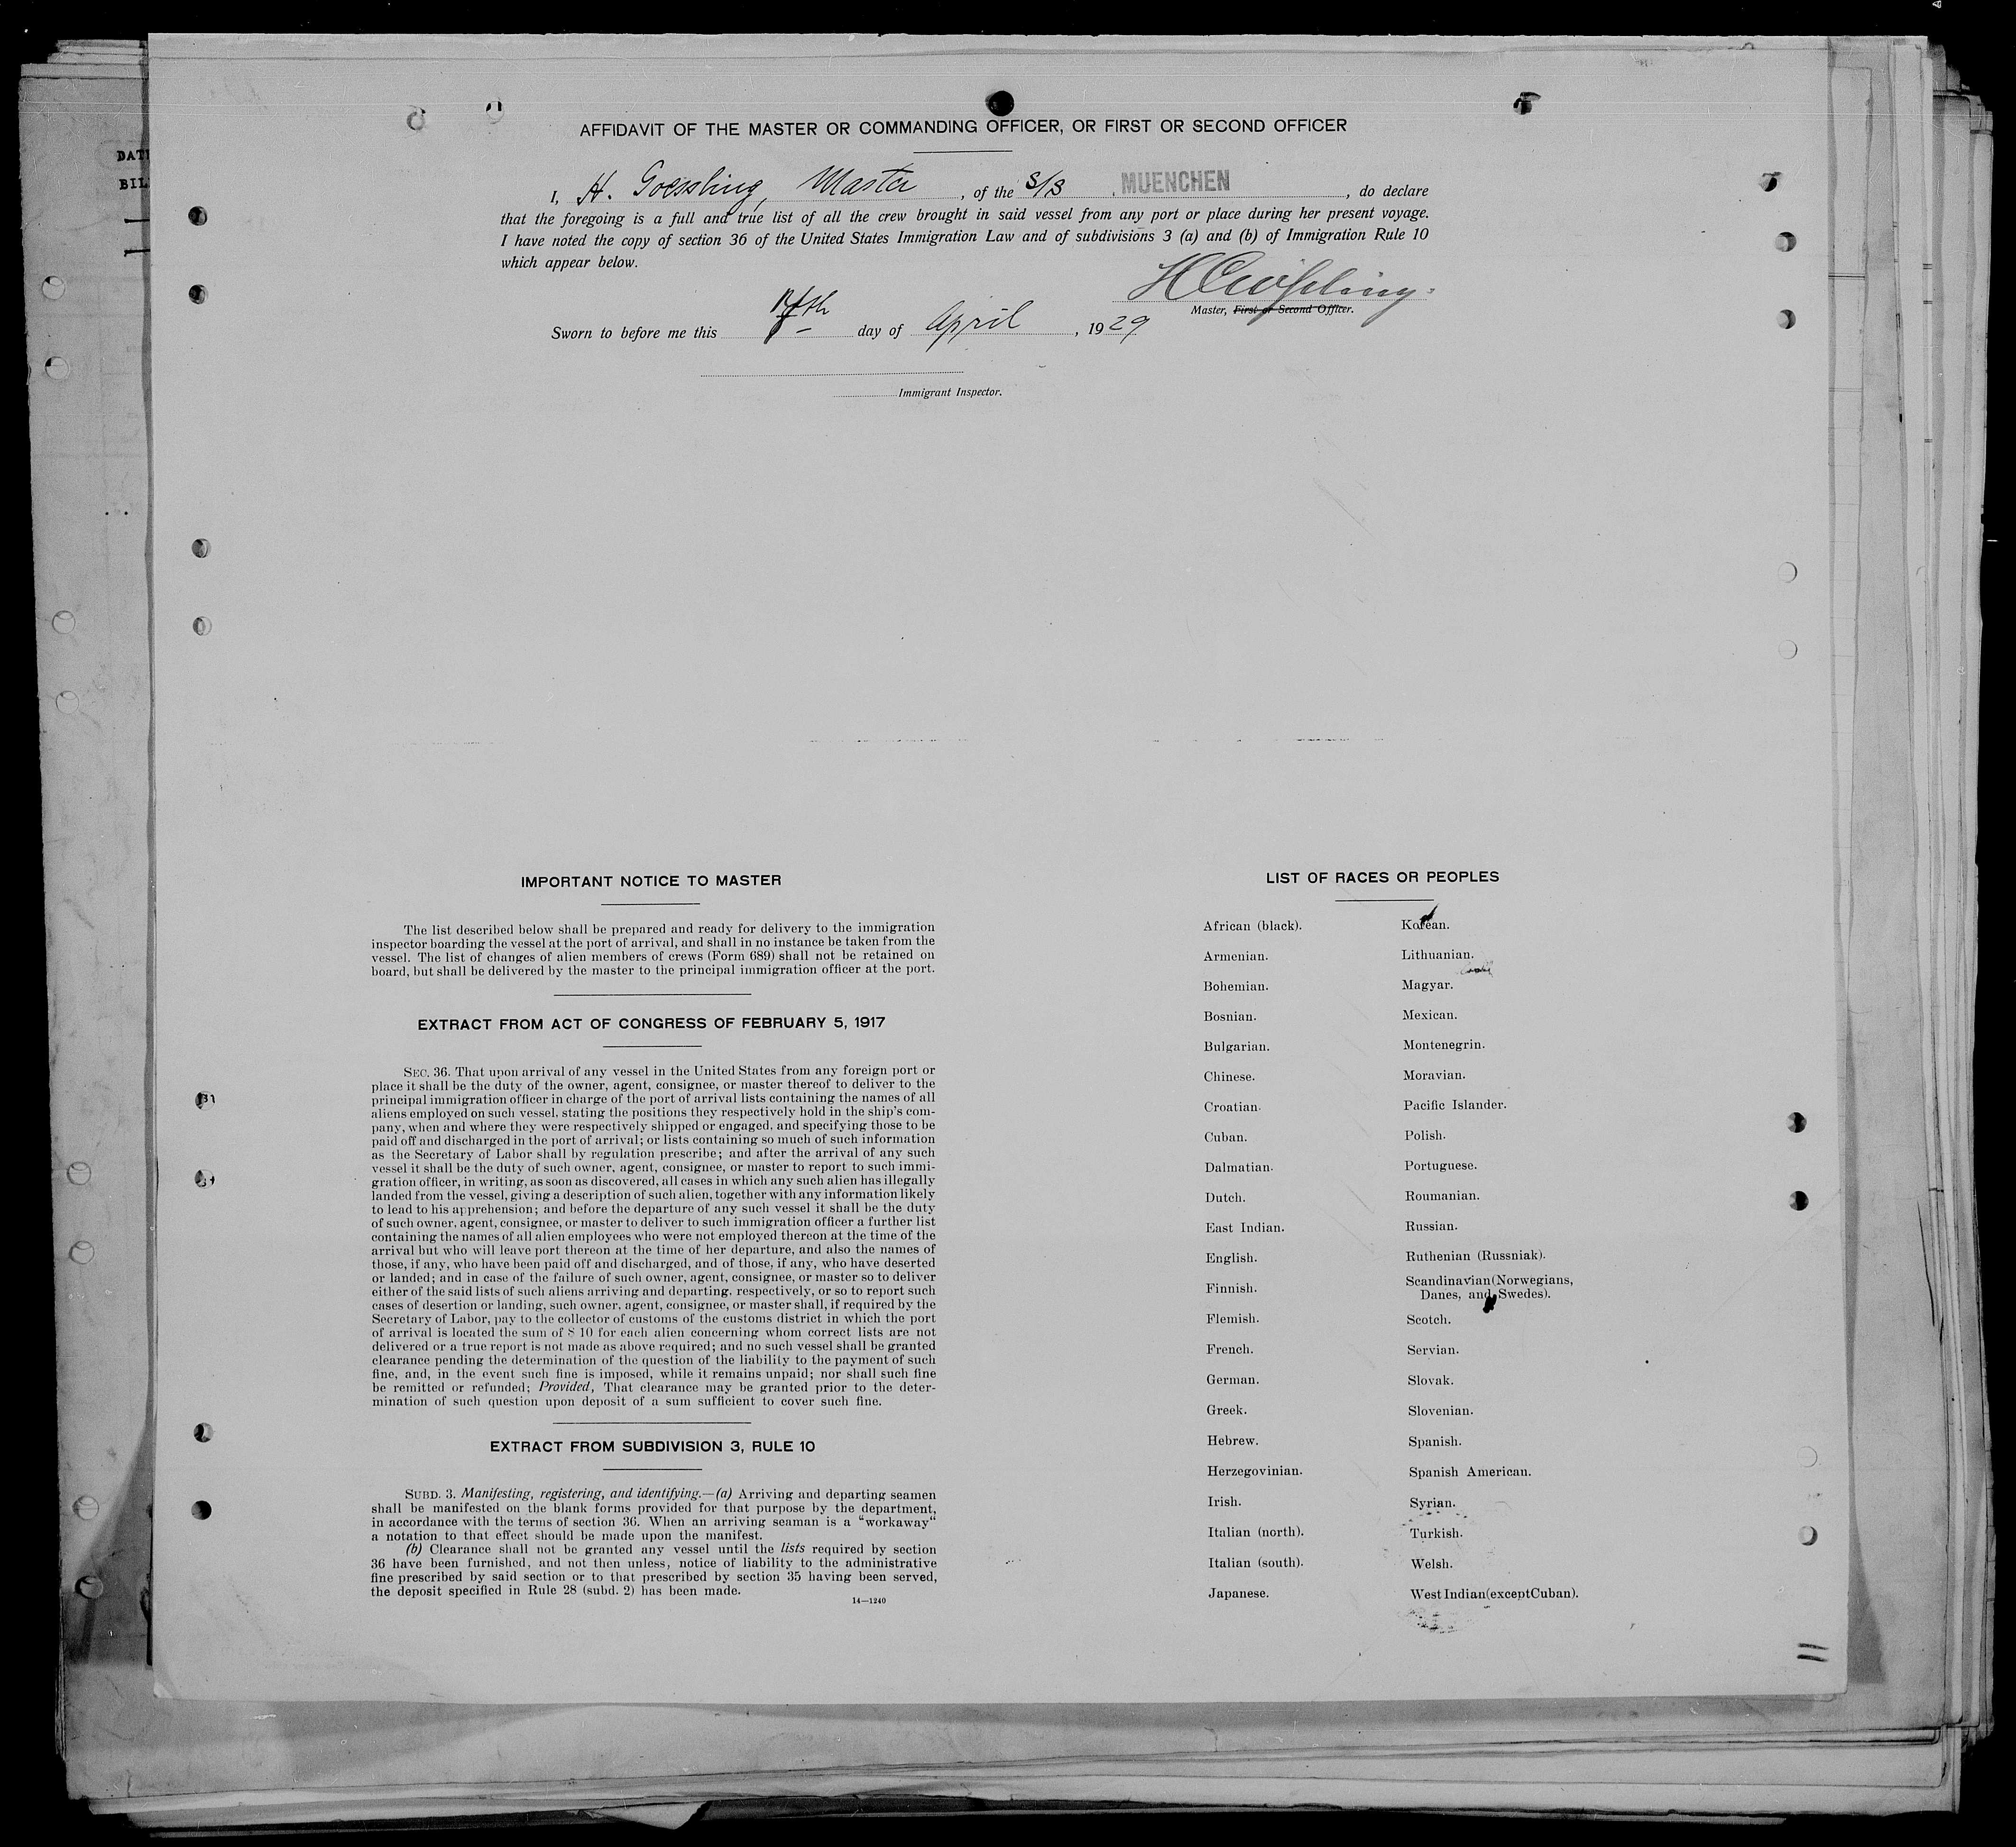 DAT
BIL
AFFIDAVIT OF THE MASTER OR COMMANDING OFFICER, OR FIRST OR SECOND OFFICER
I, H. Goessling, Master, of the S/S MUENCHEN, do declare
that the foregoing is a full and true list of all the crew brought in said vessel from any port or place during her present voyage.
I have noted the copy of section 36 of the United States Immigration Law and of subdivisions 3 (a) and (b) of Immigration Rule 10
which appear below.
Master, First or Second Officer.
Sworn to before me this day of April, 1929
Immigrant Inspector.
IMPORTANT NOTICE TO MASTER
The list described below shall be prepared and ready for delivery to the immigration
inspector boarding the vessel at the port of arrival, and shall in no instance be taken from the
vessel. The list of changes of alien members of crews (Form 689) shall not be retained on
board, but shall be delivered by the master to the principal immigration officer at the port.
EXTRACT FROM ACT OF CONGRESS OF FEBRUARY 5, 1917
SEC. 36. That upon arrival of any vessel in the United States from any foreign port or
place it shall be the duty of the owner, agent, consignee, or master thereof to deliver to the
principal immigration officer in charge of the port of arrival lists containing the names of all
aliens employed on such vessel, stating the positions they respectively hold in the ship's com-
pany, when and where they were respectively shipped or engaged, and specifying those to be
paid off and discharged in the port of arrival; or lists containing so much of such information
as the Secretary of Labor shall by regulation prescribe; and after the arrival of any such
vessel it shall be the duty of such owner, agent, consignee, or master to report to such immi-
gration officer, in writing, as soon as discovered, all cases in which any such alien has illegally
landed from the vessel, giving a description of such alien, together with any information likely
to lead to his apprehension; and before the departure of any such vessel it shall be the duty
of such owner, agent, consignee, or master to deliver to such immigration officer a further list
containing the names of all alien employees who were not employed thereon at the time of the
arrival but who will leave port thereon at the time of her departure, and also the names of
those, if any, who have been paid off and discharged, and of those, if any, who have deserted
or landed; and in case of the failure of such owner, agent, consignee, or master so to deliver
either of the said lists of such aliens arriving and departing, respectively, or so to report such
cases of desertion or landing, such owner, agent, consignee, or master shall, if required by the
Secretary of Labor, pay to the collector of customs of the customs district in which the port
of arrival is located the sum of $ 10 for each alien concerning whom correct lists are not
delivered or a true report is not made as above required; and no such vessel shall be granted
clearance pending the determination of the question of the liability to the payment of such
fine, and, in the event such fine is imposed, while it remains unpaid; nor shall such fine
be remitted or refunded; Provided, That clearance may be granted prior to the deter-
mination of such question upon deposit of a sum sufficient to cover such fine.
EXTRACT FROM SUBDIVISION 3, RULE 10
SUBD. 3. Manifesting, registering, and identifying.—(a) Arriving and departing seamen
shall be manifested on the blank forms provided for that purpose by the department,
in accordance with the terms of section 36. When an arriving seaman is a “workaway“
a notation to that effect should be made upon the manifest.
(b) Clearance shall not be granted any vessel until the lists required by section
36 have been furnished, and not then unless, notice of liability to the administrative
fine prescribed by said section or to that prescribed by section 35 having been served,
the deposit specified in Rule 28 (subd. 2) has been made.
14—1240
LIST OF RACES OR PEOPLES
African (black).
Armenian.
Bohemian.
Bosnian.
Bulgarian.
Chinese.
Croatian.
Cuban.
Dalmatian.
Dutch.
East Indian.
English.
Finnish.
Flemish.
French.
German.
Greek.
Hebrew.
Herzegovinian.
Irish.
Italian (north).
Italian (south).
Japanese.
Korean.
Lithuanian.
Magyar.
Mexican.
Montenegrin.
Moravian.
Pacific Islander.
Polish.
Portuguese.
Roumanian.
Russian.
Ruthenian (Russniak).
Scandinavian(Norwegians,
Danes, and Swedes).
Scotch.
Servian.
Slovak.
Slovenian.
Spanish.
Spanish American.
Syrian.
Turkish.
Welsh.
West Indian(exceptCuban).